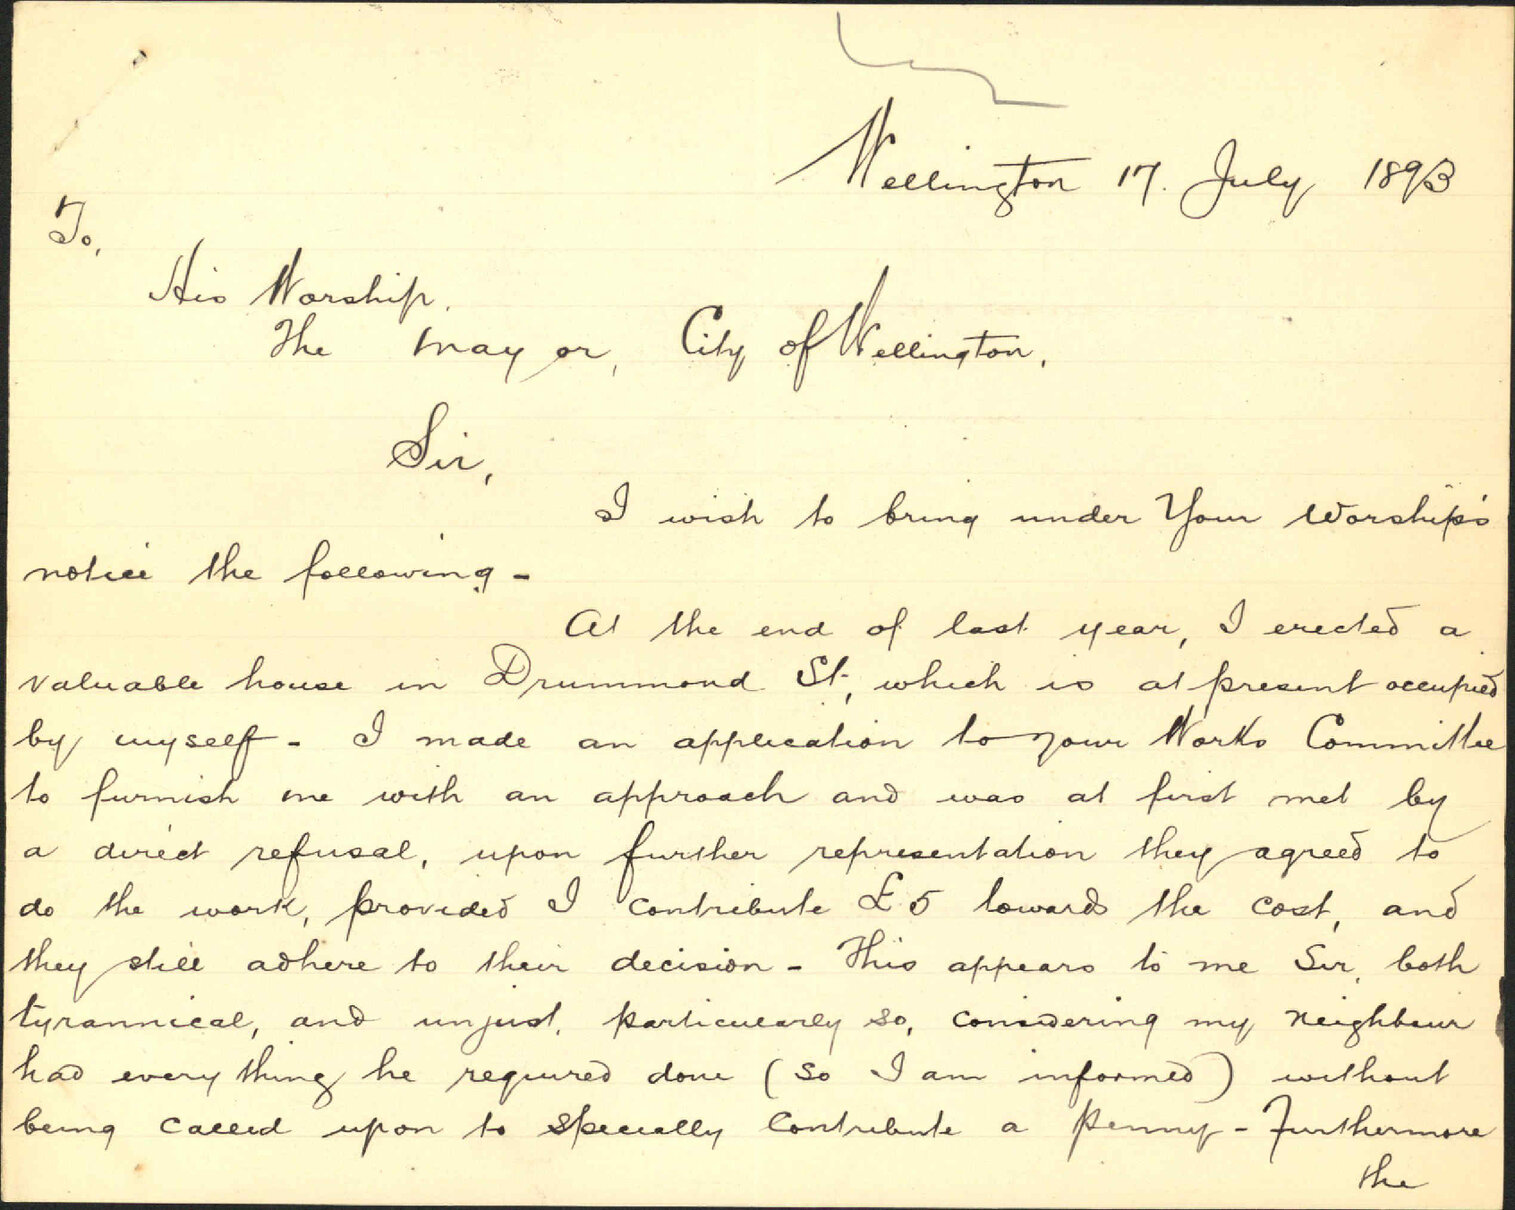 Wellington 17. July 1893
To,
His Worship.
The Mayor, City of Wellington.
Sir,
I wish to bring under Your Worship's
notice the following -
At the end of last year, I erected a
valuable house in Drummond St, which is at present occupied
by myself - I made an application to your Works Committee
to furnish me with an approach and was at first met by
a direct refusal, upon further representation they agreed to
do the work, provided I contribute £5 towards the cost, and
they still adhere to their decision - This appears to me Sir, both
tyrannical, and unjust, particularly so, considering my neighbour
had everything he required done (so I am informed) without
being called upon to specially contribute a penny - Furthermore
the